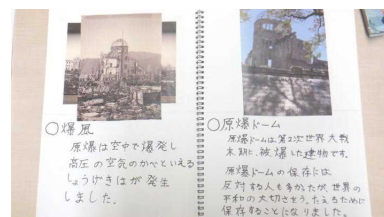 ○爆風
原爆は空中で爆発し
高圧の空気のかべといえる
しょうげきはが発生
しました。
○原爆ドーム
原爆ドームは第2次世界大戦
末期に被爆した建物です。
原爆ドームの保存には
反対する人も多かたが、世界の
平和の大切さをうったえるために
保存することになりました。